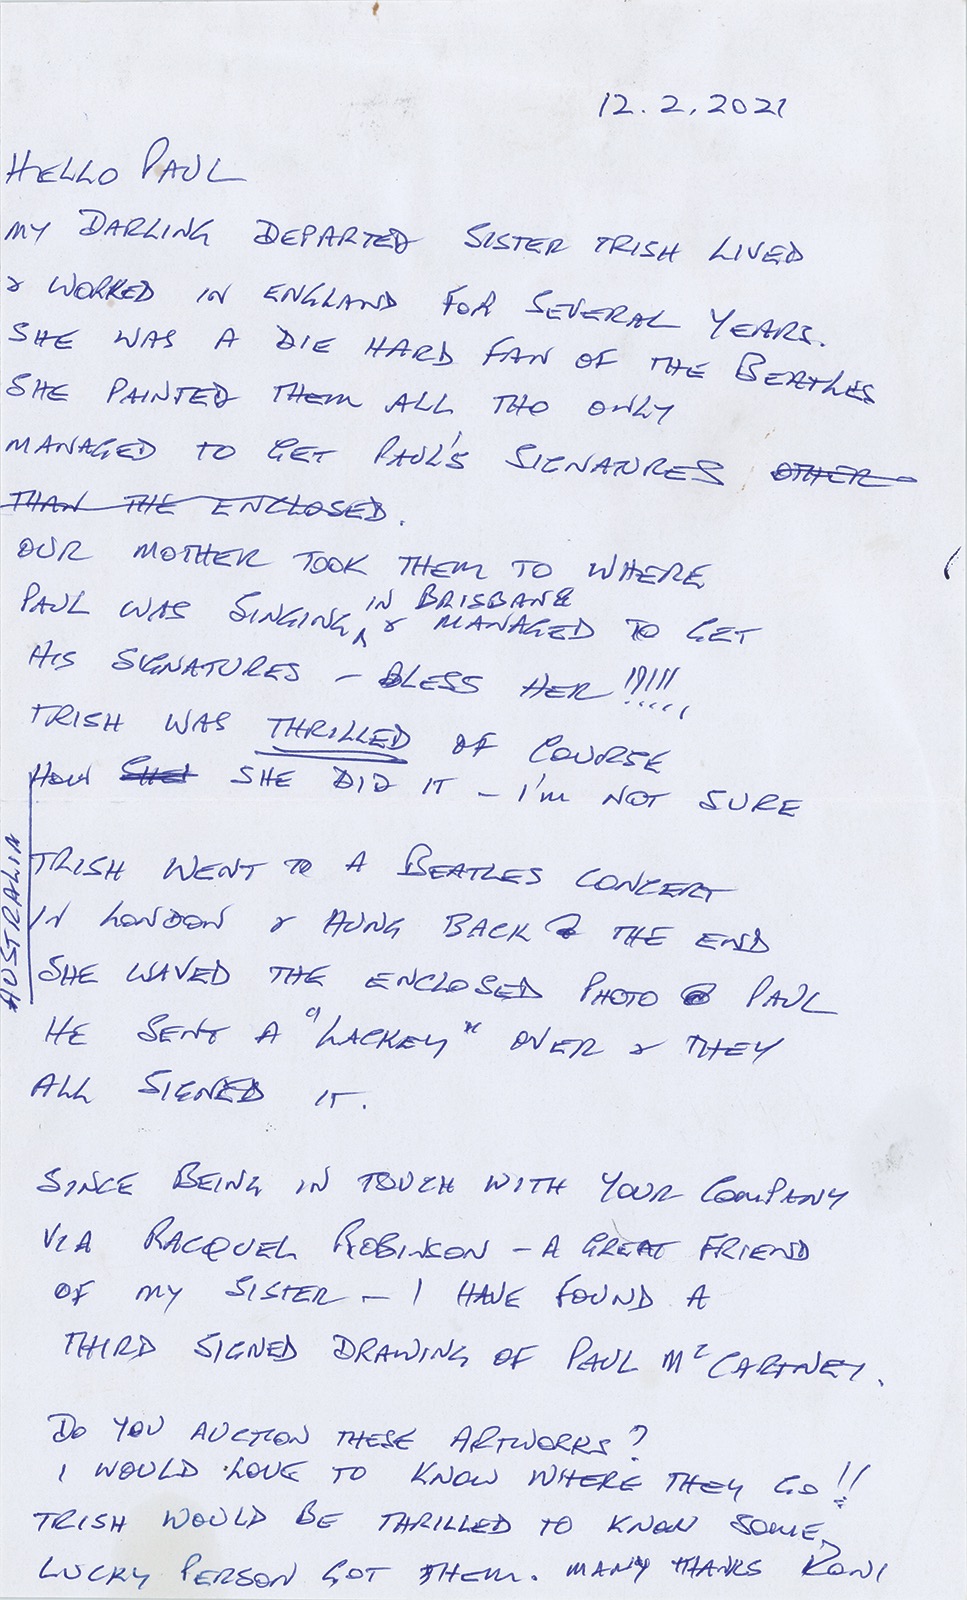 12.2.2021
HELLO PAUL
MY DARLING DEPARTED SISTER TRISH LIVED
& WORKED IN ENGLAND FOR SEVERAL YEARS.
SHE WAS A DIE HARD FAN OF THE BEATLES
SHE PAINTED THEM ALL THO ONLY
MANAGED TO GET PAUL'S SIGNATURES OTHER
THAN THE ENCLOSED.
OUR MOTHER TOOK THEM TO WHERE
PAUL WAS SINGING IN BRISBANE & MANAGED TO GET
HIS SIGNATURES – BLESS HER !!!!!!
TRISH WAS THRILLED OF COURSE
HOW SHE SHE DID IT – I'M NOT SURE
AUSTRALIA
TRISH WENT TO A BEATLES CONCERT
IN LONDON & HUNG BACK @ THE END
SHE WAVED THE ENCLOSED PHOTO @ PAUL
HE SENT A "LACKEY" OVER & THEY
ALL SIGNED IT.
SINCE BEING IN TOUCH WITH YOUR COMPANY
VIA RACQUEL ROBINSON – A GREAT FRIEND
OF MY SISTER – I HAVE FOUND A
THIRD SIGNED DRAWING OF PAUL McCARTNEY.
DO YOU AUCTION THESE ARTWORKS?
I WOULD LOVE TO KNOW WHERE THEY GO!!
TRISH WOULD BE THRILLED TO KNOW SOME
LUCKY PERSON GOT THEM. MANY THANKS RONI